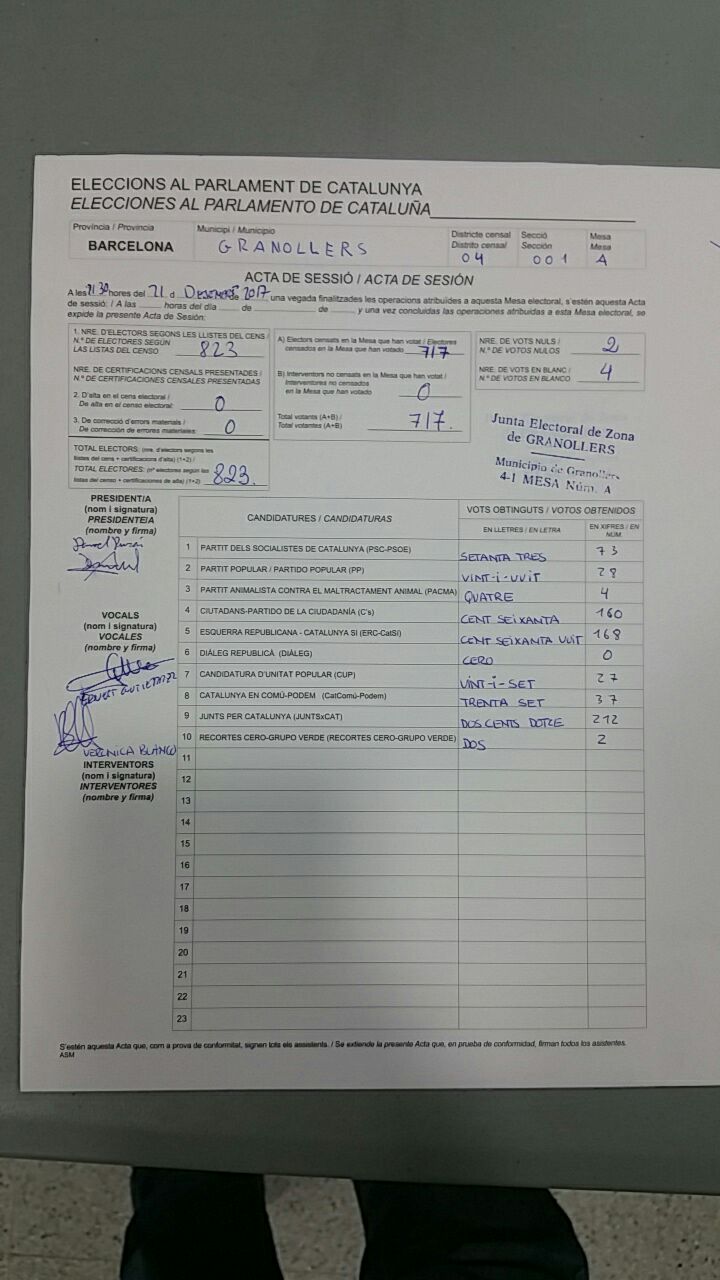 ELECCIONS AL PARLAMENT DE CATALUNYA
ELECCIONES AL PARLAMENTO DE CATALUÑA
Província / Provincia
BARCELONA
Municipi / Municipio
GRANOLLERS
Districte censal
Distrito censal
04
Secció
Sección
001
Mesa
Mesa
A
ACTA DE SESSIÓ / ACTA DE SESIÓN
A les 21 30 hores del 21 d DESEMBRE de 2017 una vegada finalitzades les operacions atribuïdes a aquesta Mesa electoral, s'estén aquesta Acta
de sessió: / A las horas del día de de y una vez concluidas las operaciones atribuidas a esta Mesa electoral, se
expide la presente Acta de Sesión:
1. NRE. D'ELECTORS SEGONS LES LLISTES DEL CENS /
N.º DE ELECTORES SEGÚN
LAS LISTAS DEL CENSO 823
NRE. DE CERTIFICACIONS CENSALS PRESENTADES /
N.º DE CERTIFICACIONES CENSALES PRESENTADAS
2. D'alta en el cens electoral /
De alta en el censo electoral: 0
3. De correcció d'errors materials /
De corrección de errores materiales: 0
TOTAL ELECTORS: (nre. d'electors segons les
llistes del cens + certificacions d'alta) (1+2) /
TOTAL ELECTORES: (nº electores según las
listas del censo + certificaciones de alta) (1+2) 823.
A) Electors censats en la Mesa que han votat / Electores
censados en la Mesa que han votado 717
B) Interventors no censats en la Mesa que han votat /
Interventores no censados
en la Mesa que han votado 0
Total votants (A+B) /
Total votantes (A+B) 717.
NRE. DE VOTS NULS /
N.º DE VOTOS NULOS 2
NRE. DE VOTS EN BLANC /
N.º DE VOTOS EN BLANCO 4
Junta Electoral de Zona
de GRANOLLERS
Municipio de Granollers
4-1 MESA Núm. A
PRESIDENT/A
(nom i signatura)
PRESIDENTE/A
(nombre y firma)
VOCALS
(nom i signatura)
VOCALES
(nombre y firma)
GUTIERREZ
VERÓNICA BLANCO
INTERVENTORS
(nom i signatura)
INTERVENTORES
(nombre y firma)
CANDIDATURES / CANDIDATURAS
VOTS OBTINGUTS / VOTOS OBTENIDOS
EN LLETRES / EN LETRA
EN XIFRES / EN NÚM.
1 PARTIT DELS SOCIALISTES DE CATALUNYA (PSC-PSOE) SETANTA TRES 73
2 PARTIT POPULAR / PARTIDO POPULAR (PP) VINT-I-VUIT 28
3 PARTIT ANIMALISTA CONTRA EL MALTRACTAMENT ANIMAL (PACMA) QUATRE 4
4 CIUTADANS-PARTIDO DE LA CIUDADANÍA (C's) CENT SEIXANTA 160
5 ESQUERRA REPUBLICANA - CATALUNYA SÍ (ERC-CatSí) CENT SEIXANTA VUIT 168
6 DIÀLEG REPUBLICÀ (DIÀLEG) CERO 0
7 CANDIDATURA D'UNITAT POPULAR (CUP) VINT-I-SET 27
8 CATALUNYA EN COMÚ-PODEM (CatComú-Podem) TRENTA SET 37
9 JUNTS PER CATALUNYA (JUNTSxCAT) DOS CENTS DOTZE 212
10 RECORTES CERO-GRUPO VERDE (RECORTES CERO-GRUPO VERDE) DOS 2
11
12
13
14
15
16
17
18
19
20
21
22
23
S'estén aquesta Acta que, com a prova de conformitat, signen tots els assistents. / Se extiende la presente Acta que, en prueba de conformidad, firman todos los asistentes.
ASM